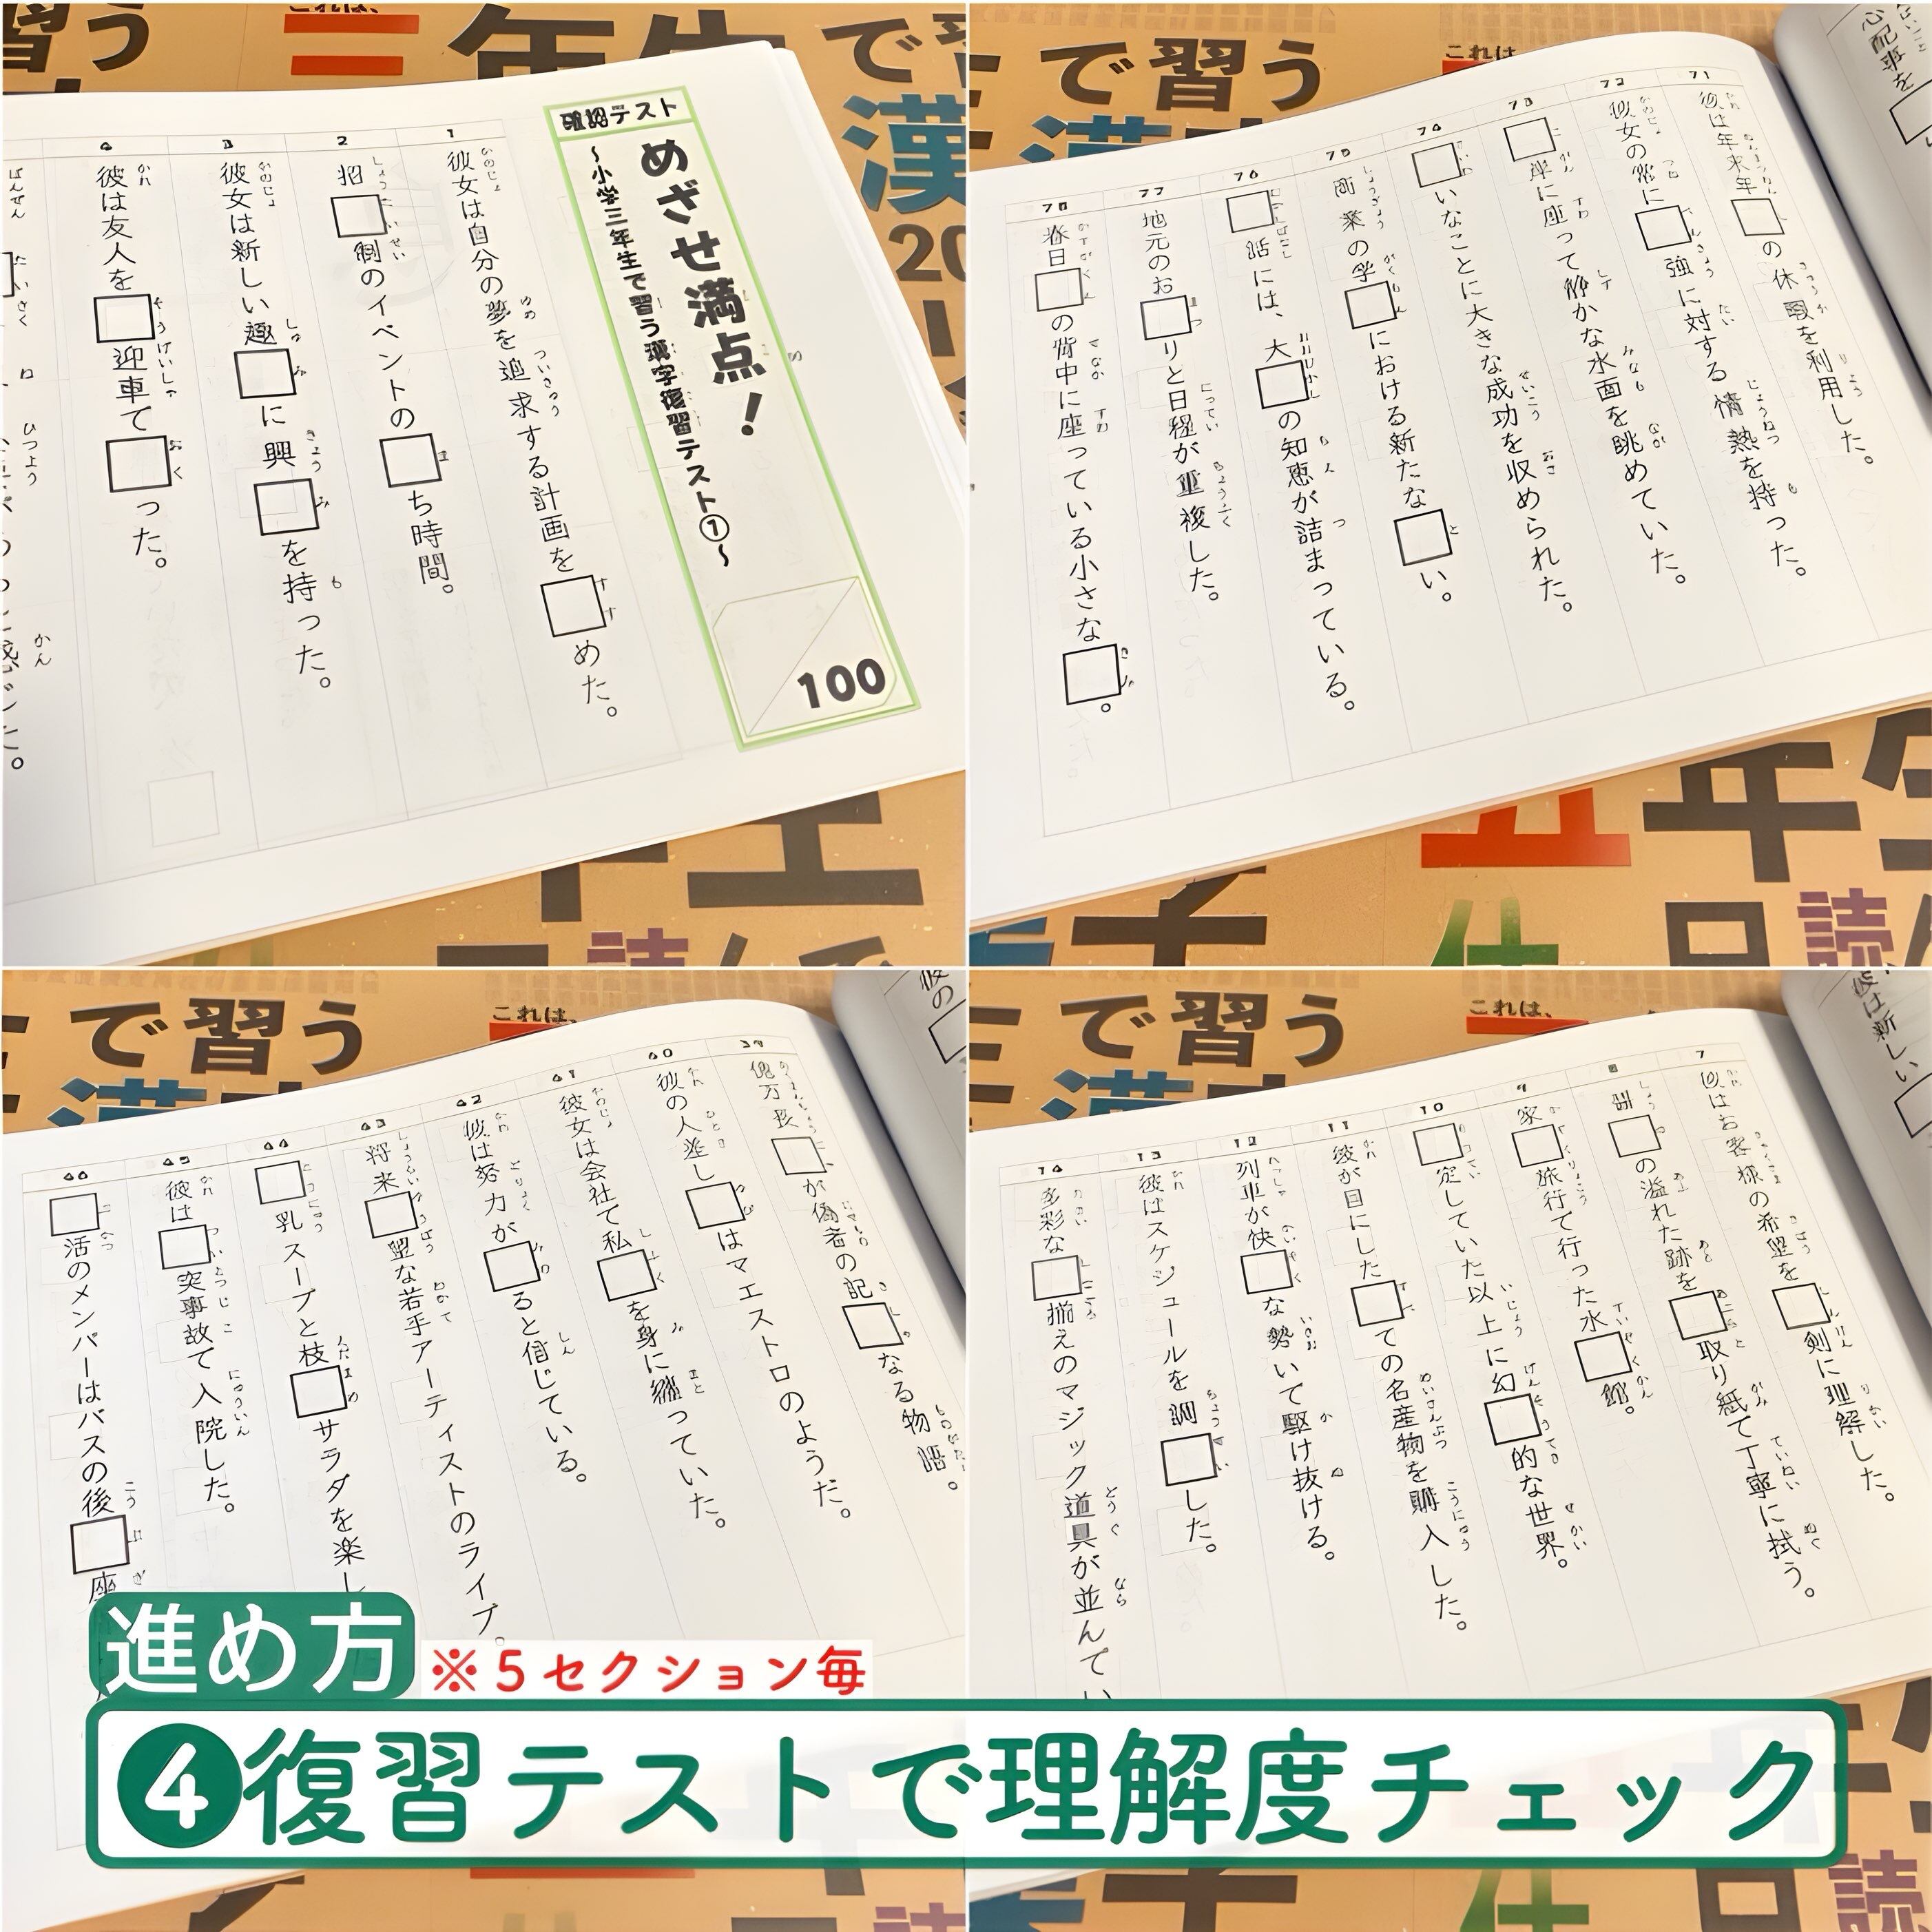 確認テスト
めざせ満点！
～小学三年生で習う漢字復習テスト①～
100
1
彼女は自分の夢を追求する計画を□めた。
2
招□制のイベントの□ち時間。
3
彼女は新しい趣□に興□を持った。
4
彼は友人を□迎車で□った。
で習う
これは、
71
彼は年末年□の休暇を利用した。
72
彼女の常に□強に対する情熱を持った。
73
□岸に座って静かな水面を眺めていた。
74
□いなことに大きな成功を収められた。
75
商業の学□における新たな□い。
76
□話には、大□の知恵が詰まっている。
77
地元のお□りと日程が重複した。
78
春日□の背中に座っている小さな□。
で習う
これは、
39
億万長□が偽者の記□なる物語。
40
彼の人差し□はマエストロのようだ。
41
彼女は会社で私□を身に纏っていた。
42
彼は努力が□ると信じている。
43
将来□望な若手アーティストのライブ。
44
□乳スープと枝□サラダを楽し
45
彼は□突事故で入院した。
46
□活のメンバーはバスの後□座
で習う
これは、
7
彼はお客様の希望を□剣に理解した。
8
□の溢れた跡を□取り紙で丁寧に拭う。
9
家□旅行で行った水□館。
10
□定していた以上に幻□的な世界。
11
彼が目にした□ての名産物を購入した。
12
列車が快□な勢いで駆け抜ける。
13
彼はスケジュールを調□した。
14
多彩な□揃えのマジック道具が並んでい
進め方
※5セクション毎
❹復習テストで理解度チェック